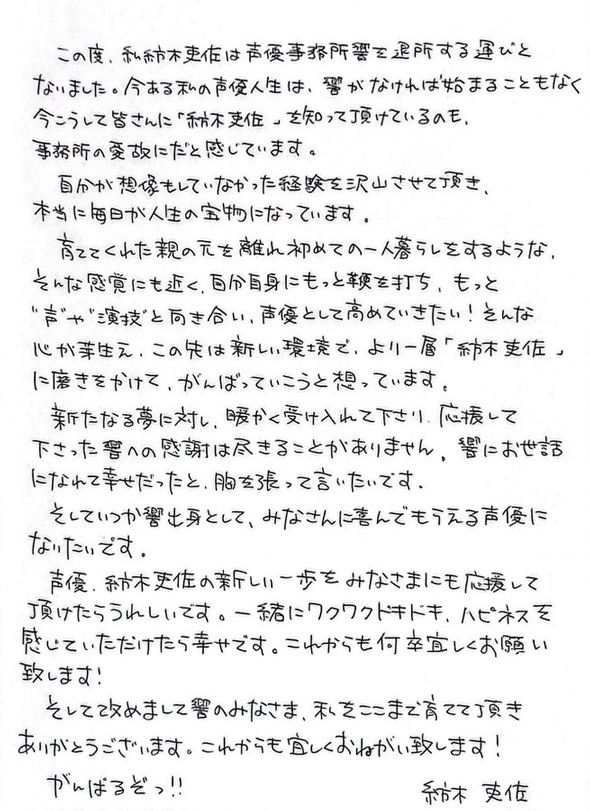 この度、私紡木吏佐は声優事務所響を退所する運びと
なりました。今ある私の声優人生は、響がなければ始まることもなく
今こうして皆さんに「紡木吏佐」を知って頂けているのも、
事務所の愛故にだと感じています。
自分が想像もしていなかった経験を沢山させて頂き、
本当に毎日が人生の宝物になっています。
育ててくれた親の元を離れ初めての一人暮らしをするような、
そんな感覚にも近く、自分自身にもっと鞭を打ち、もっと
"声"や"演技"と向き合い、声優として高めていきたい!そんな
心が芽生え、この先は新しい環境で、より一層「紡木吏佐」
に磨きをかけて、がんばっていこうと想っています。
新たなる夢に対し、暖かく受け入れて下さり、応援して
下さった響への感謝は尽きることがありません。響にお世話
になれて幸せだったと、胸を張って言いたいです。
そしていつか響出身として、みなさんに喜んでもらえる声優に
なりたいです。
声優、紡木吏佐の新しい一歩をみなさまにも応援して
頂けたらうれしいです。一緒にワクワクドキドキ、ハピネスを
感じていただけたら幸せです。これからも何卒宜しくお願い
致します!
そして改めまして響のみなさま、私をここまで育てて頂き
ありがとうございます。これからも宜しくおねがい致します!
がんばるぞっ!!
紡木 吏佐